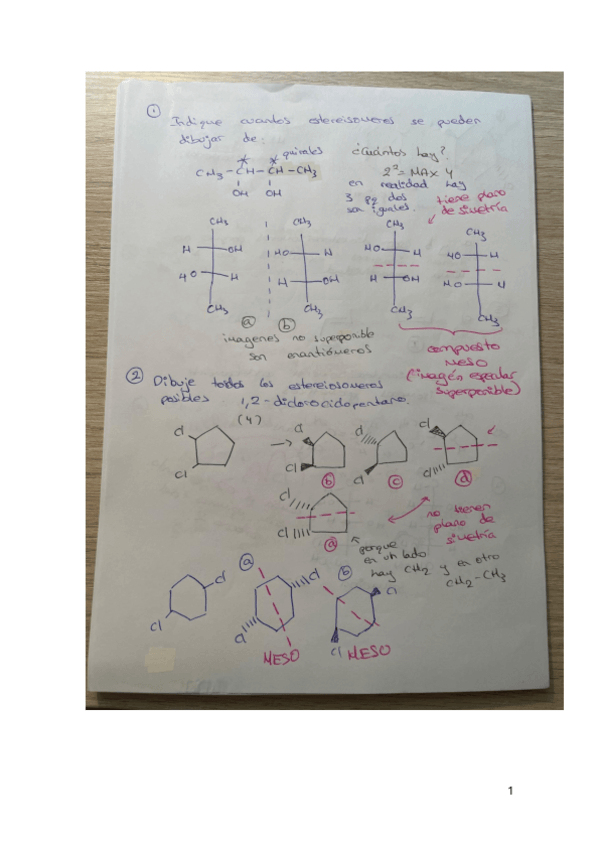 ① Indique cuantos estereisomeros se pueden
dibujar de:
quirales ¿Cuántos hay?
CH3 - CH - CH - CH3
OH OH
2² = MAX 4
en realidad hay
3 pq dos
son iguales.
tiene plano
de simetría
CH3 CH3 CH3 CH3
H OH HO H HO H HO H
HO H H OH H OH HO H
CH3 CH3 CH3 CH3
ⓐ ⓑ
imagenes no superponible
son enantiómeros
compuesto
MESO
(imagén especular
superponible)
② Dibuje todos los estereoisomeros
posibles 1,2-diclorociclopentano.
(4)
Cl Cl Cl Cl
Cl Cl Cl Cl
ⓑ ⓒ ⓓ
Cl
Cl
ⓐ
no tienen
plano de
simetría
porque
en un lado
hay CH2 y en otro
CH2-CH3
Cl ⓐ Cl ⓑ Cl
Cl Cl Cl
MESO MESO
1